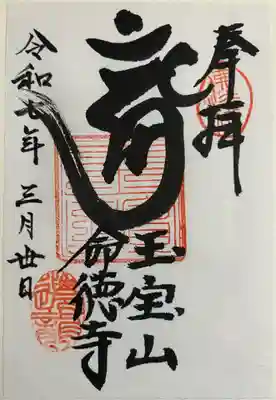 奉拝
玉宝山
命徳寺
令和七年
三月廿日